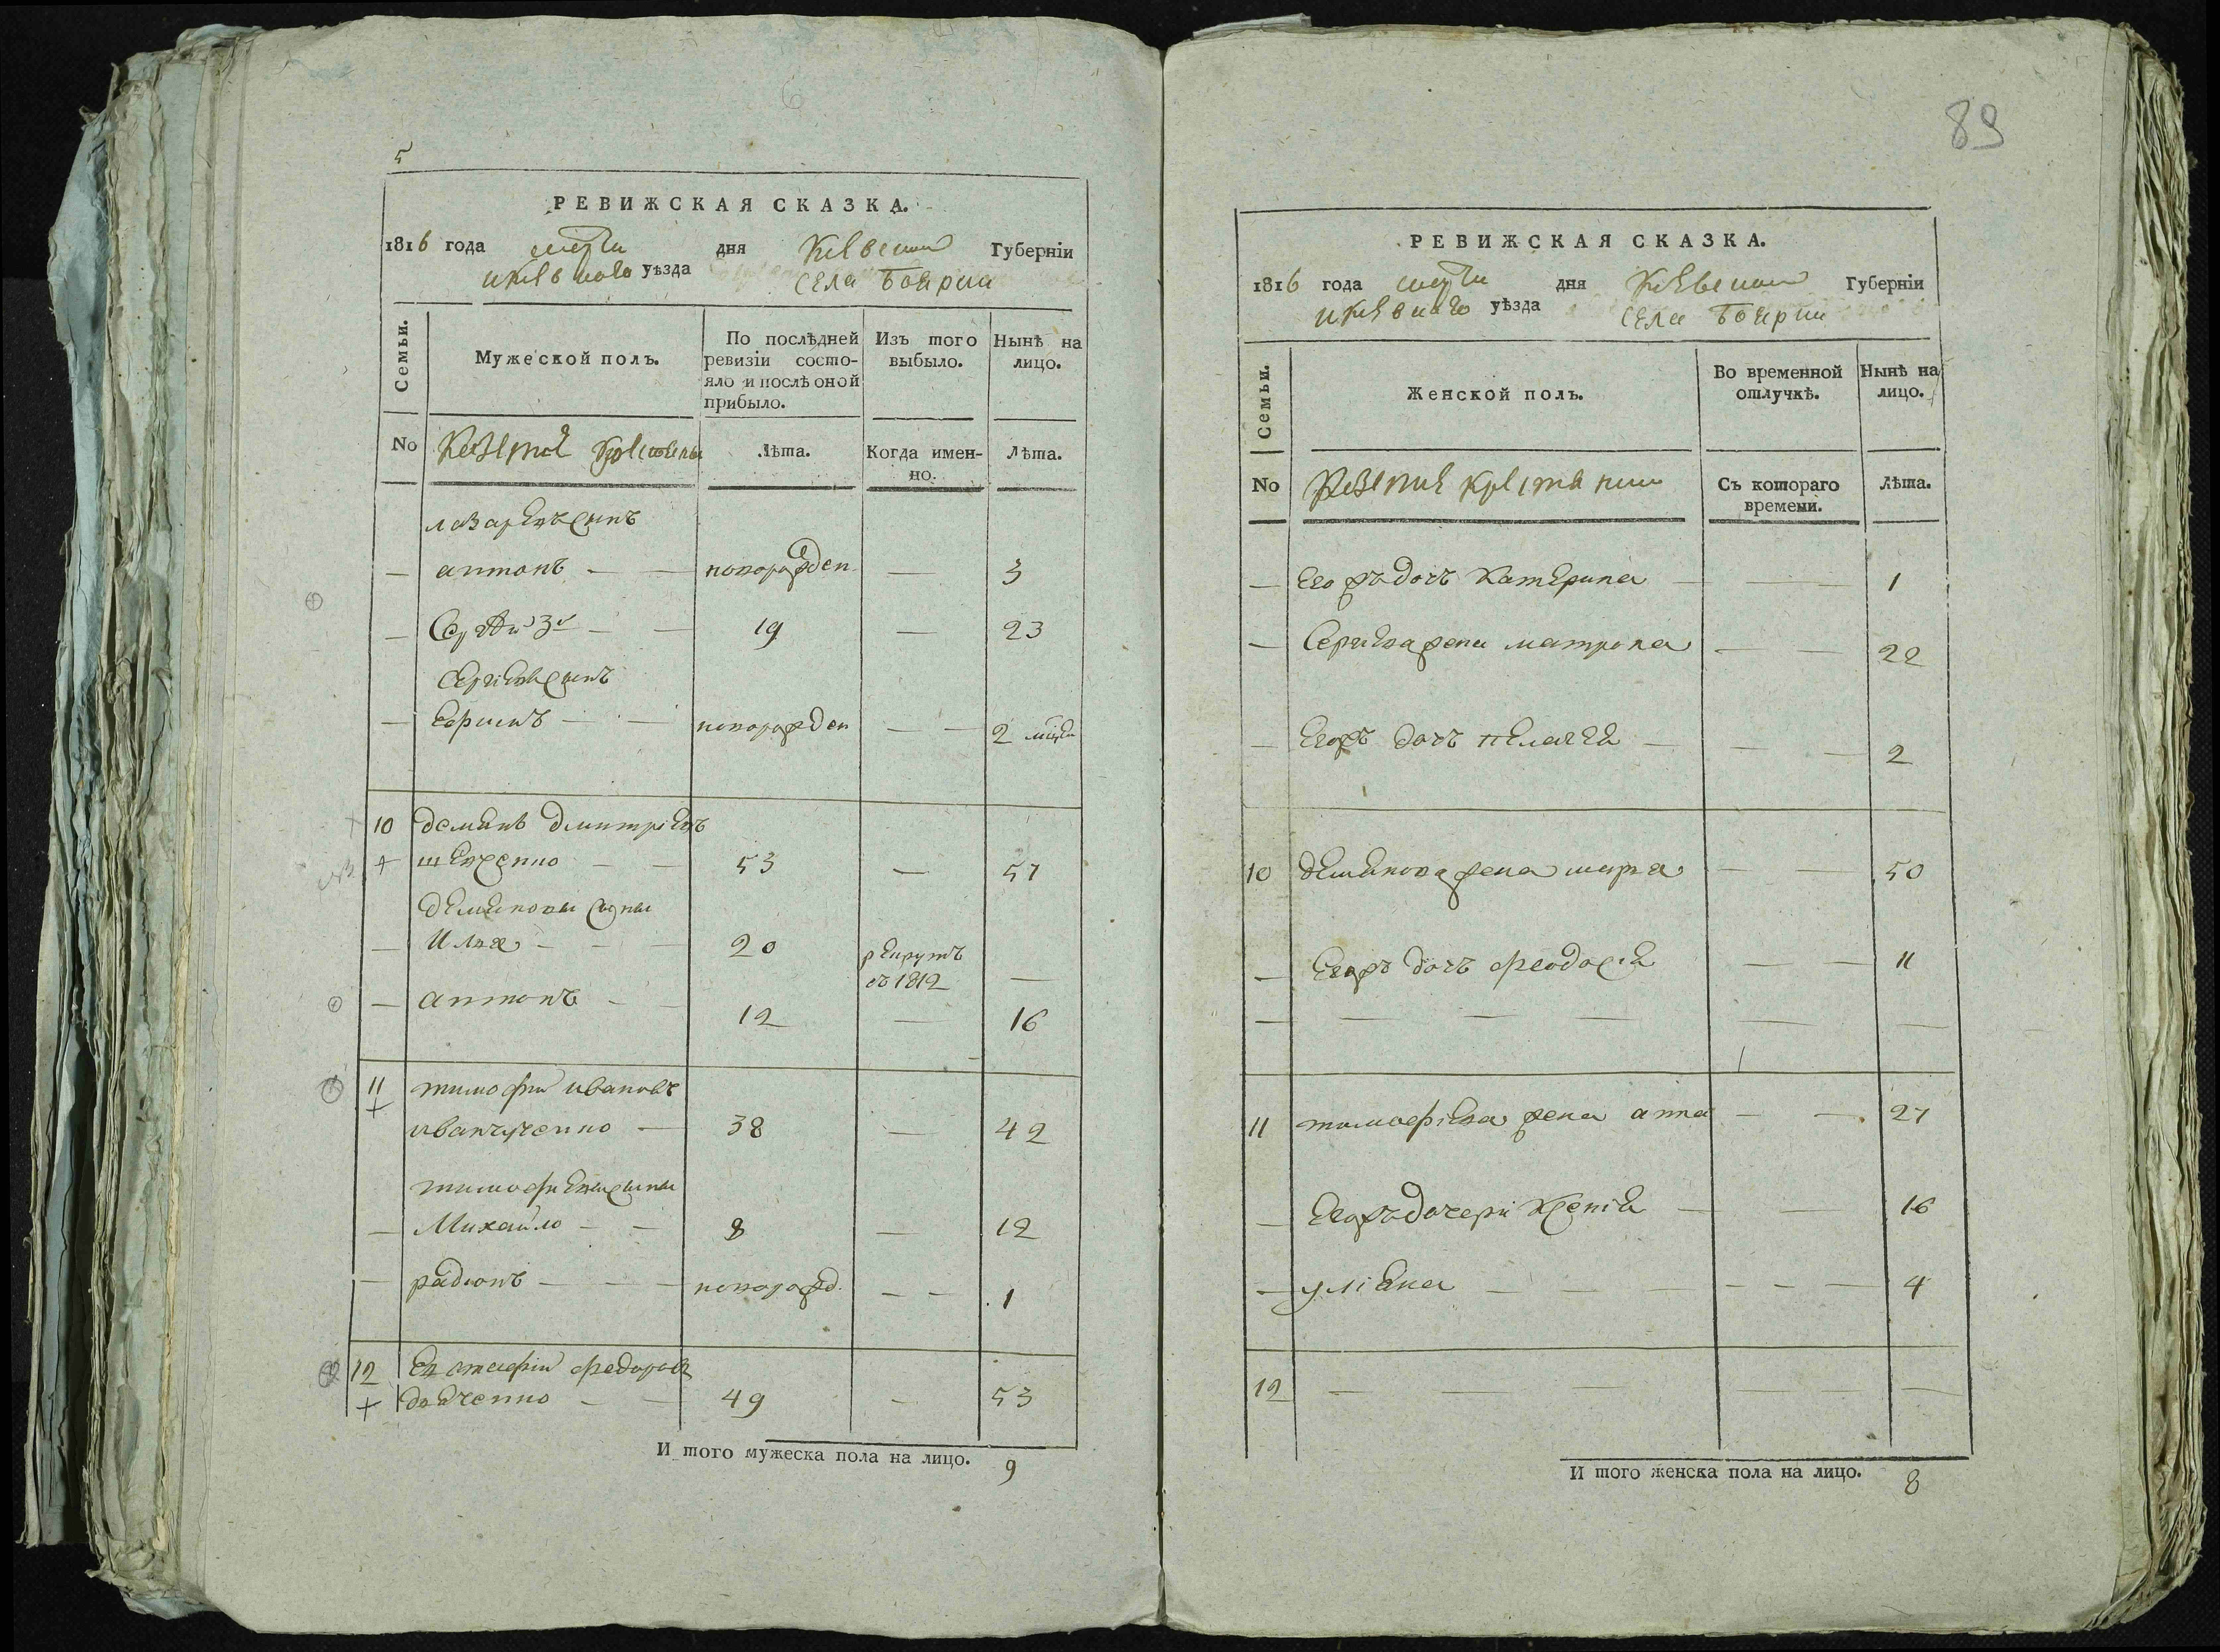 5
РЕВИЖСКАЯ СКАЗКА.
1816 года марта дня Киевской Губерніи
и Киевскаго уѣзда села Боярки
Семьи.
Мужеской полъ.
По послѣдней ревизіи состо-
яло и послѣ оной
прибыло.
Изъ того
выбыло.
Нынѣ на
лицо.
No Казенніе крестяны
Лѣта.
Когда имен-
но.
Лѣта.
лазаревъ сынъ
— антонъ — — новорожден — 3
— Сергѣй 3й — — 19 — 23
Сергіевъ сынъ
— — — новорожден — — 2 місеца
10 демянъ дмитріевъ
шевченко — — 53 — 57
демяновы сыны
— Илья — — — 20 рекрутъ
въ 1812 —
— антонъ — — 12 — 16
11 тимофій ивановъ
иванчченко — 38 — 42
тимофиевы сыны
— Михайло — — 8 — 12
— радіонъ — — — новорожд. — — 1
12 Евстафій федоровъ
дяченко — — 49 — 53
И того мужеска пола на лицо. 9
89
РЕВИЖСКАЯ СКАЗКА.
1816 года марта дня Киевской Губерніи
и Киевскаго уѣзда села Боярки
Семьи.
Женской полъ.
Во временной
отлучкѣ.
Нынѣ на
лицо.
No Казенніе крестянки
Съ котораго
времени.
Лѣта.
— Егожъ дочъ Катерина — — — 1
— Сергиева жена матрона — — 22
— Егожъ дочъ пелагея — — — 2
10 демянова жена марья — — 50
— Егожъ дочъ феодосія — — 11
— — — — — —
11 тимофіева жена анна — — 27
— Егожъ дочери Ксенія — — 16
— уліяна — — — — — — 4
12 — — — — —
И того женска пола на лицо. 8